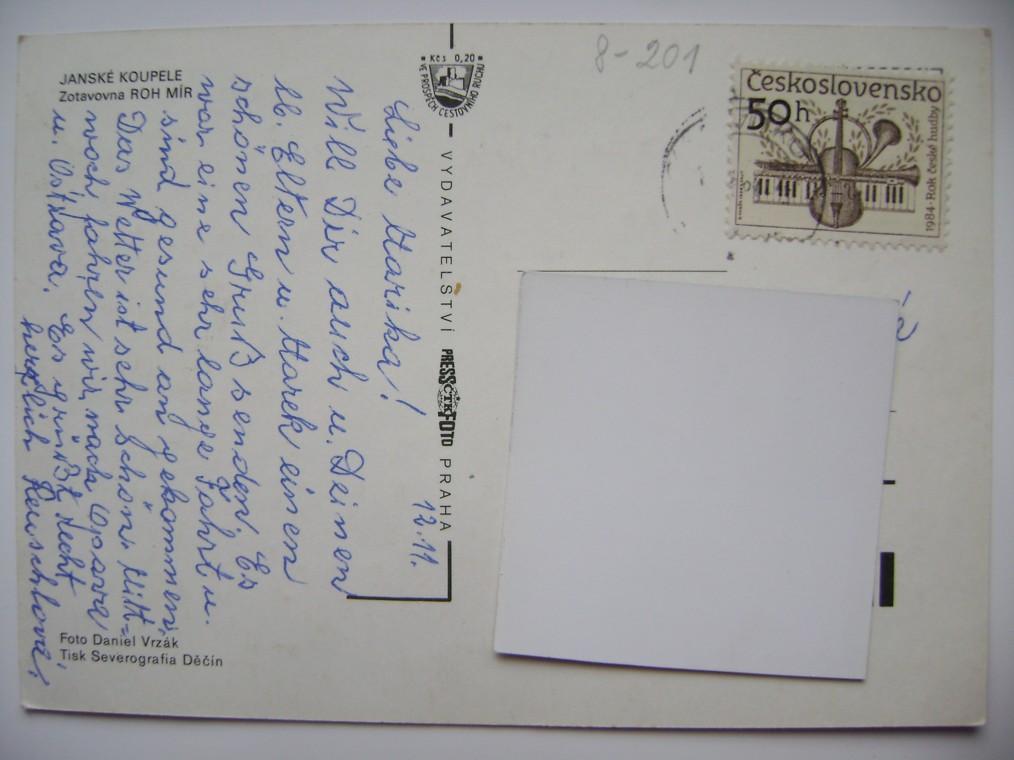 JANSKÉ KOUPELE
Zotavovna ROH MÍR
12.11.
Liebe Marika!
Will Dir auch u. Deinen
lb. Eltern u. Marek einen
schönen Gruß senden. Es
war eine sehr lange Fahrt u.
sind gesund an gekommen.
Das Wetter ist sehr schön. Mitt=
woch fahren wir nach Opava
u. Ostrava. Es grüßt recht
herzlich
Foto Daniel Vrzák
Tisk Severografia Děčín
Kčs 0,20
VE PROSPĚCH CESTOVNÍHO RUCHU
VYDAVATELSTVÍ PRESSFOTO PRAHA
ČTK
8-201
Československo
50h
1984 · Rok české hudby